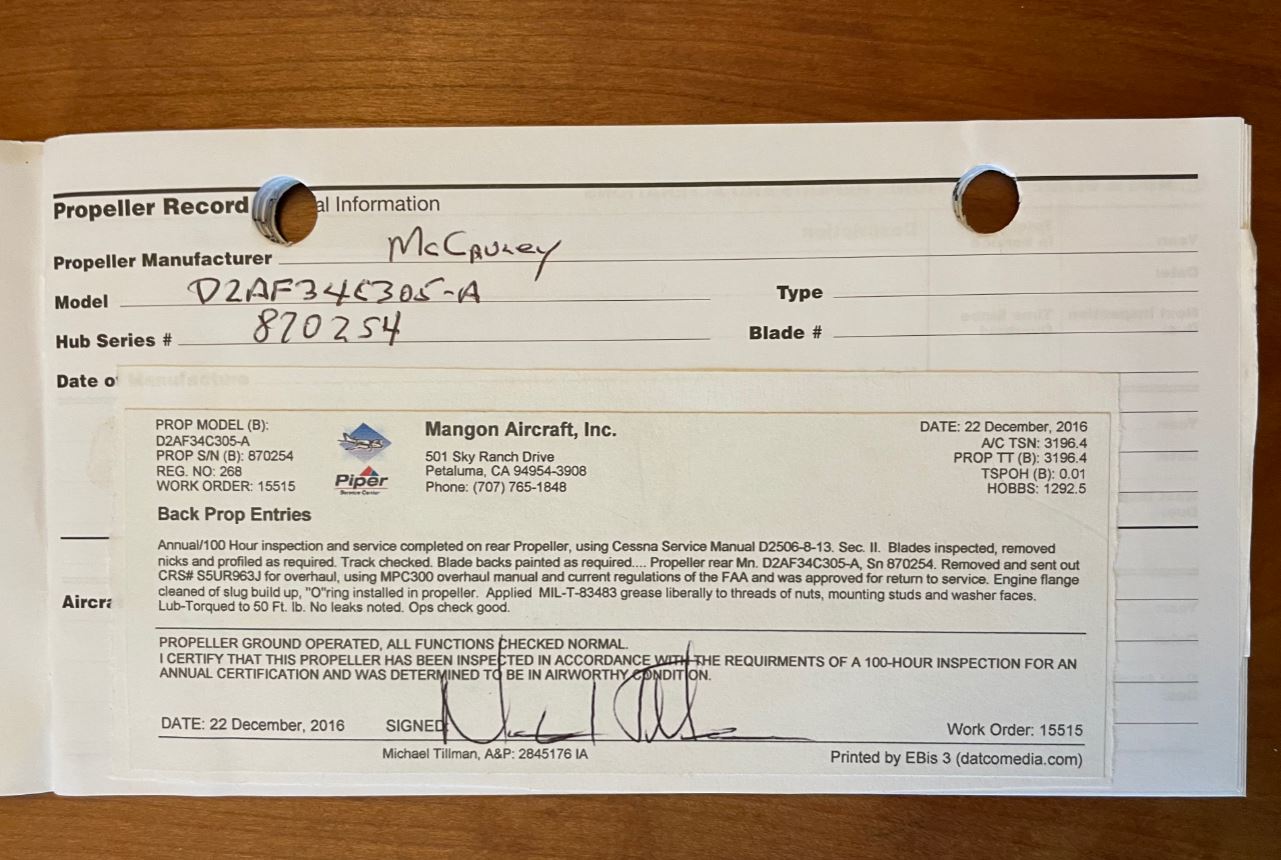 Propeller Record al Information
Propeller Manufacturer McCauley
Model D2AF34C305-A Type
Hub Series # 870254 Blade #
Date o
PROP MODEL (B):
D2AF34C305-A
PROP S/N (B): 870254
REG. NO: 268
WORK ORDER: 15515
Piper
Service Center
Mangon Aircraft, Inc.
501 Sky Ranch Drive
Petaluma, CA 94954-3908
Phone: (707) 765-1848
DATE: 22 December, 2016
A/C TSN: 3196.4
PROP TT (B): 3196.4
TSPOH (B): 0.01
HOBBS: 1292.5
Back Prop Entries
Annual/100 Hour inspection and service completed on rear Propeller, using Cessna Service Manual D2506-8-13. Sec. II. Blades inspected, removed
nicks and profiled as required. Track checked. Blade backs painted as required.... Propeller rear Mn. D2AF34C305-A, Sn 870254. Removed and sent out
CRS# S5UR963J for overhaul, using MPC300 overhaul manual and current regulations of the FAA and was approved for return to service. Engine flange
cleaned of slug build up, "O"ring installed in propeller. Applied MIL-T-83483 grease liberally to threads of nuts, mounting studs and washer faces.
Lub-Torqued to 50 Ft. lb. No leaks noted. Ops check good.
Aircra
PROPELLER GROUND OPERATED, ALL FUNCTIONS CHECKED NORMAL.
I CERTIFY THAT THIS PROPELLER HAS BEEN INSPECTED IN ACCORDANCE WITH THE REQUIRMENTS OF A 100-HOUR INSPECTION FOR AN
ANNUAL CERTIFICATION AND WAS DETERMINED TO BE IN AIRWORTHY CONDITION.
DATE: 22 December, 2016 SIGNED Work Order: 15515
Michael Tillman, A&P: 2845176 IA Printed by EBis 3 (datcomedia.com)